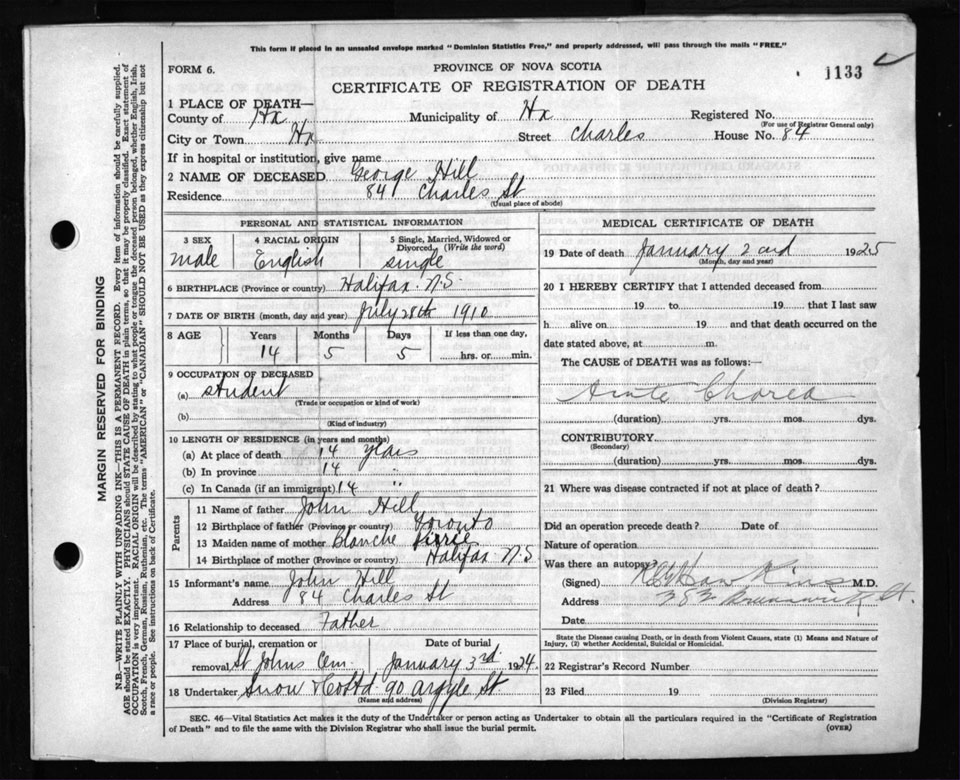 This form if placed in an unsealed envelope marked "Dominion Statistics Free," and properly addressed, will pass through the mails "FREE."
FORM 6.
PROVINCE OF NOVA SCOTIA
1133
CERTIFICATE OF REGISTRATION OF DEATH
1 PLACE OF DEATH—
County of Hx Municipality of Hx Registered No.
(For use of Registrar General only)
City or Town Hx Street Charles House No. 84
If in hospital or institution, give name
2 NAME OF DECEASED George Hill
Residence 84 Charles St
(Usual place of abode)
PERSONAL AND STATISTICAL INFORMATION
3 SEX 4 RACIAL ORIGIN 5 Single, Married, Widowed or Divorced, (Write the word)
male English single
6 BIRTHPLACE (Province or country) Halifax N.S.
7 DATE OF BIRTH (month, day and year) July 28th 1910
8 AGE Years Months Days If less than one day,
14 5 5 hrs. or min.
9 OCCUPATION OF DECEASED
(a) student
(Trade or occupation or kind of work)
(b)
(Kind of industry)
10 LENGTH OF RESIDENCE (in years and months)
(a) At place of death 14 years
(b) In province 14 "
(c) In Canada (if an immigrant) 14 "
Parents
11 Name of father John Hill
12 Birthplace of father (Province or country) Toronto
13 Maiden name of mother Blanche
14 Birthplace of mother (Province or country) Halifax N.S
15 Informant's name John Hill
Address 84 Charles St
16 Relationship to deceased Father
17 Place of burial, cremation or Date of burial
removal St Johns Cem January 3rd 1924.
18 Undertaker Snow & Co Ltd 90 Argyle St
(Name and address)
MEDICAL CERTIFICATE OF DEATH
19 Date of death January 2nd 1925
(Month, day and year)
20 I HEREBY CERTIFY that I attended deceased from
19 to 19 that I last saw
h alive on 19 and that death occurred on the
date stated above, at m.
The CAUSE of DEATH was as follows:—
Acute Chorea
(duration) yrs. mos. dys.
CONTRIBUTORY
(Secondary)
(duration) yrs. mos. dys.
21 Where was disease contracted if not at place of death?
Did an operation precede death? Date of
Nature of operation
Was there an autopsy?
(Signed) Hawkins M.D.
Address Brunswick St.
Date
State the Disease causing Death, or in death from Violent Causes, state (1) Means and Nature of
Injury, (2) whether Accidental, Suicidal or Homicidal.
22 Registrar's Record Number
23 Filed 19
(Division Registrar)
SEC. 46—Vital Statistics Act makes it the duty of the Undertaker or person acting as Undertaker to obtain all the particulars required in the "Certificate of Registration
of Death" and to file the same with the Division Registrar who shall issue the burial permit.
(OVER)
MARGIN RESERVED FOR BINDING
N.B.—WRITE PLAINLY WITH UNFADING INK—THIS IS A PERMANENT RECORD. Every item of information should be carefully supplied.
AGE should be stated EXACTLY. PHYSICIANS should STATE CAUSE OF DEATH in plain terms, so that it may be properly classified. Exact statement of
OCCUPATION is very important. RACIAL ORIGIN will be described by stating to what people or tongue the deceased person belonged, whether English, Irish,
Scotch, French, German, Russian, Ruthenian, etc. The terms "AMERICAN" or "CANADIAN" SHOULD NOT BE USED as they express citizenship but not
a race or people. See instructions on back of Certificate.